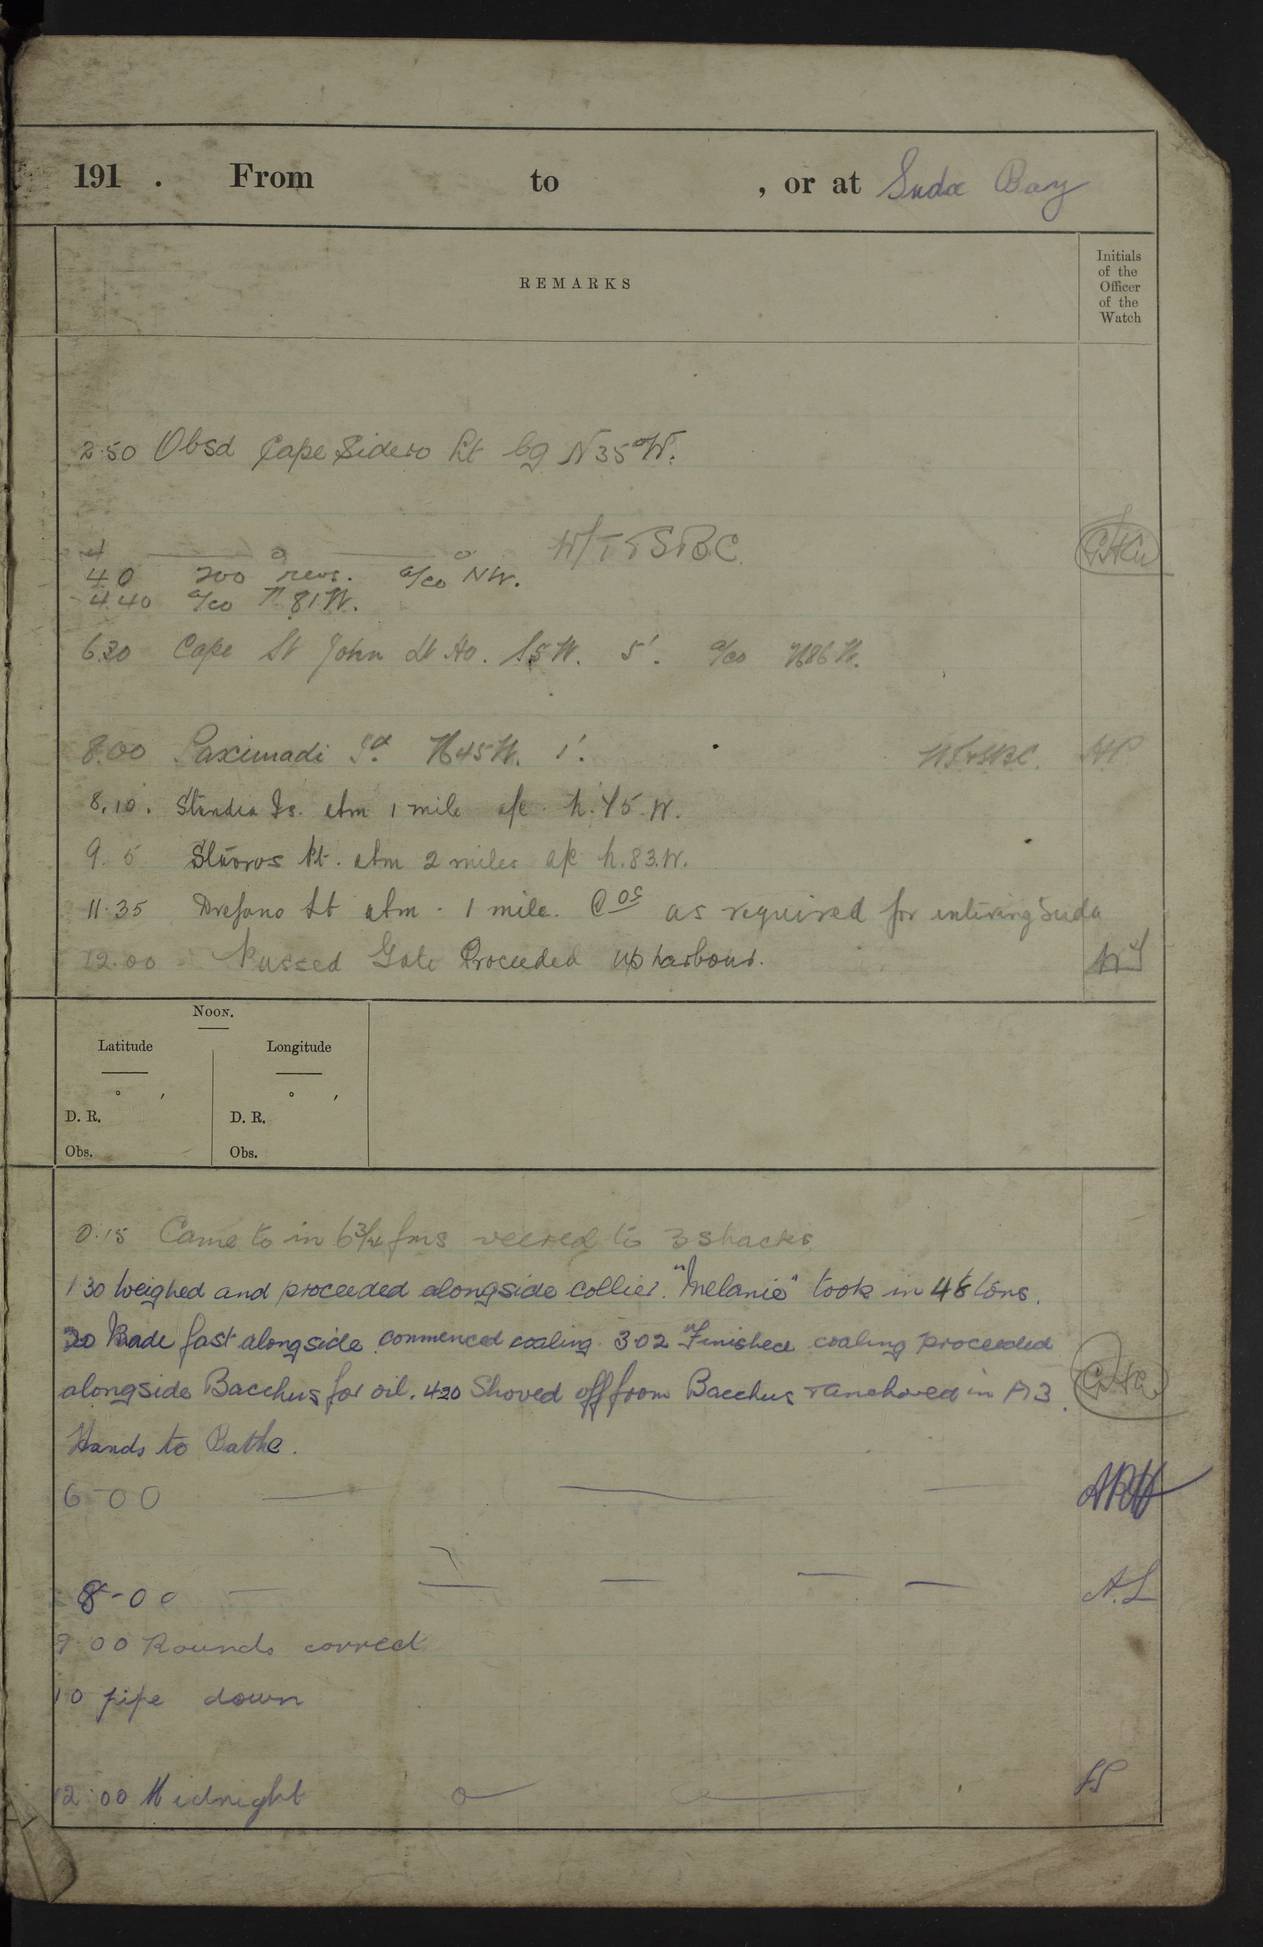 191 . From to , or at Suda Bay
REMARKS
Initials
of the
Officer
of the
Watch
2.50 Obsd Cape Sidero Lt bg N35°W.
4
4 0 200 revs. a/co NW.
4.40 a/co N 81 W.
6.30 Cape St John Lt Ho. S 5 W. 5'. a/co N86 W.
8.00 Paximadi Id. N45W. 1'.
8.10. Standia Is. abm 1 mile a/c N. 75. W.
9. 5 Stavros Pt. abm 2 miles a/c N. 83. W.
11.35 Drepano Lt abm. 1 mile. Cos as required for entering Suda
12.00 Passed Gate Proceeded up harbour.
Noon.
Latitude Longitude
° ′ ° ′
D. R. D. R.
Obs. Obs.
0.15 Came to in 6 3/4 fms veered to 3 shackes
1 30 Weighed and proceeded alongside collier. "Melanie" took in 48 tons.
20 Made fast alongside commenced coaling 3.02 Finished coaling proceeded
alongside Bacchus for oil. 420 Shoved off from Bacchus + anchored in A3.
Hands to Bathe.
6-00
8-00
A.L
9.00 Rounds correct
10 pipe down
12.00 Midnight